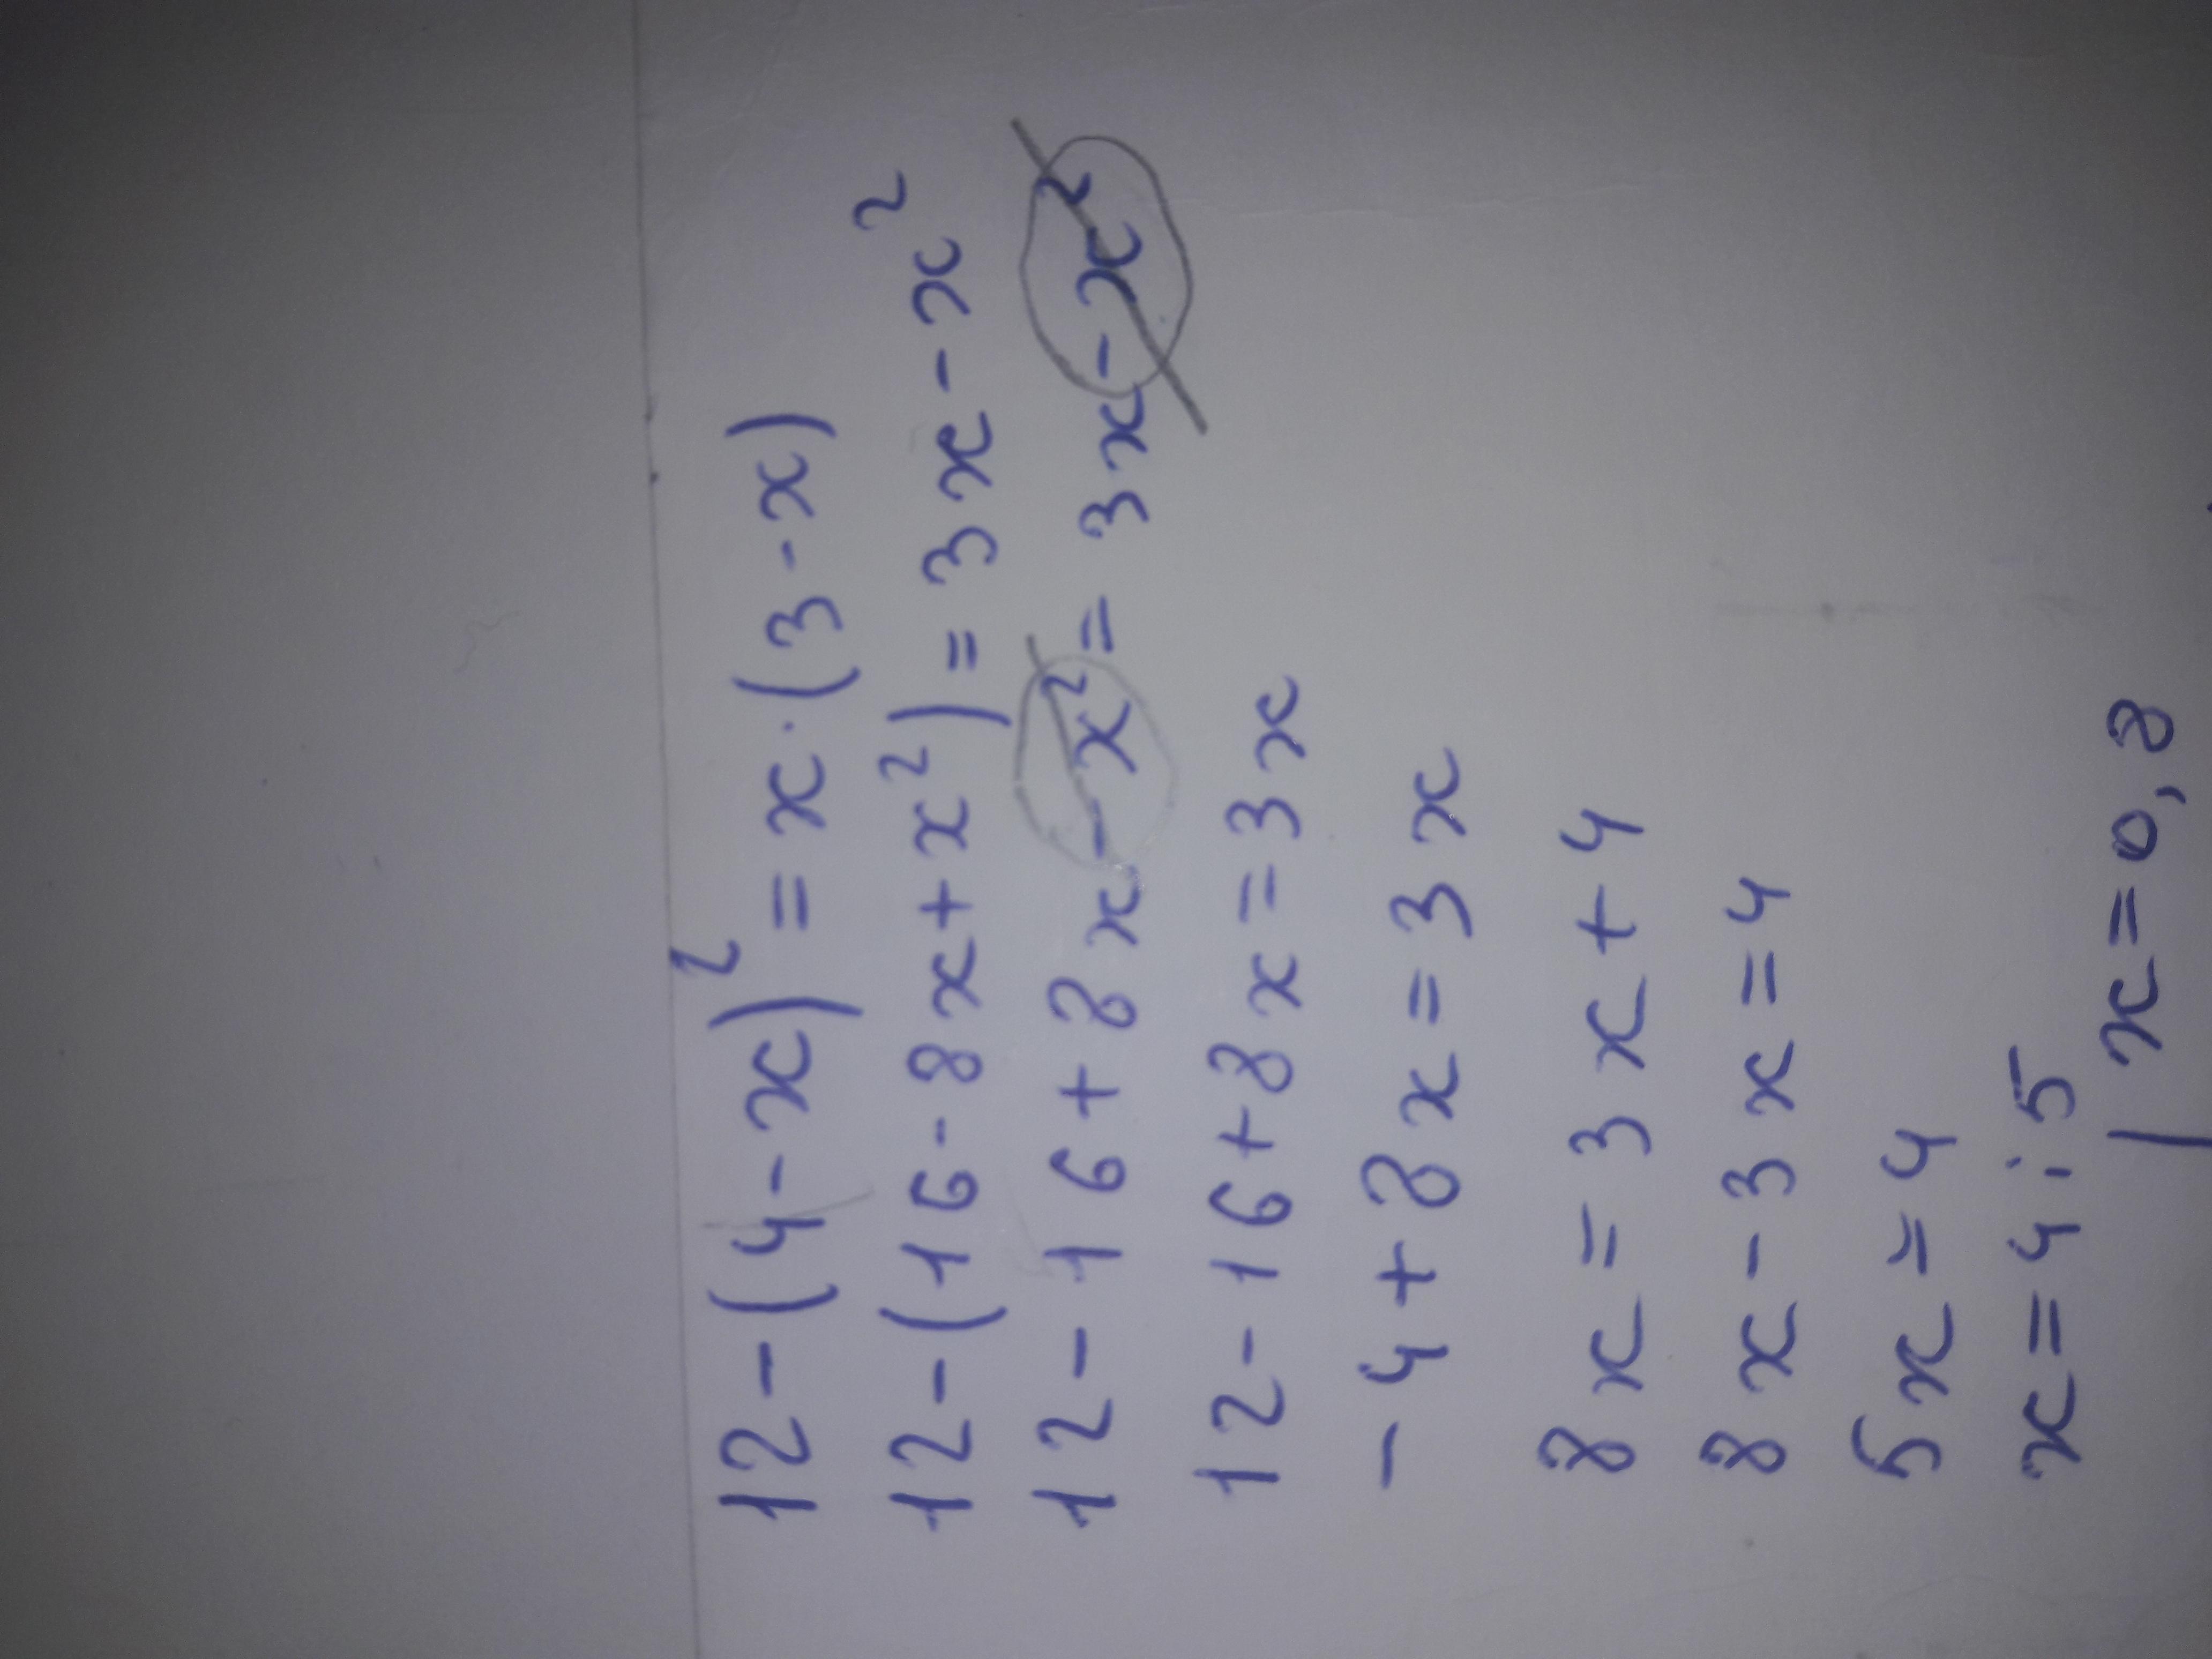 12-(4-x)²=x·(3-x)
12-(16-8x+x²)=3x-x²
12-16+8x-x²=3x-x²
12-16+8x=3x
-4+8x=3x
8x=3x+4
8x-3x=4
5x=4
x=4:5
x=0,8